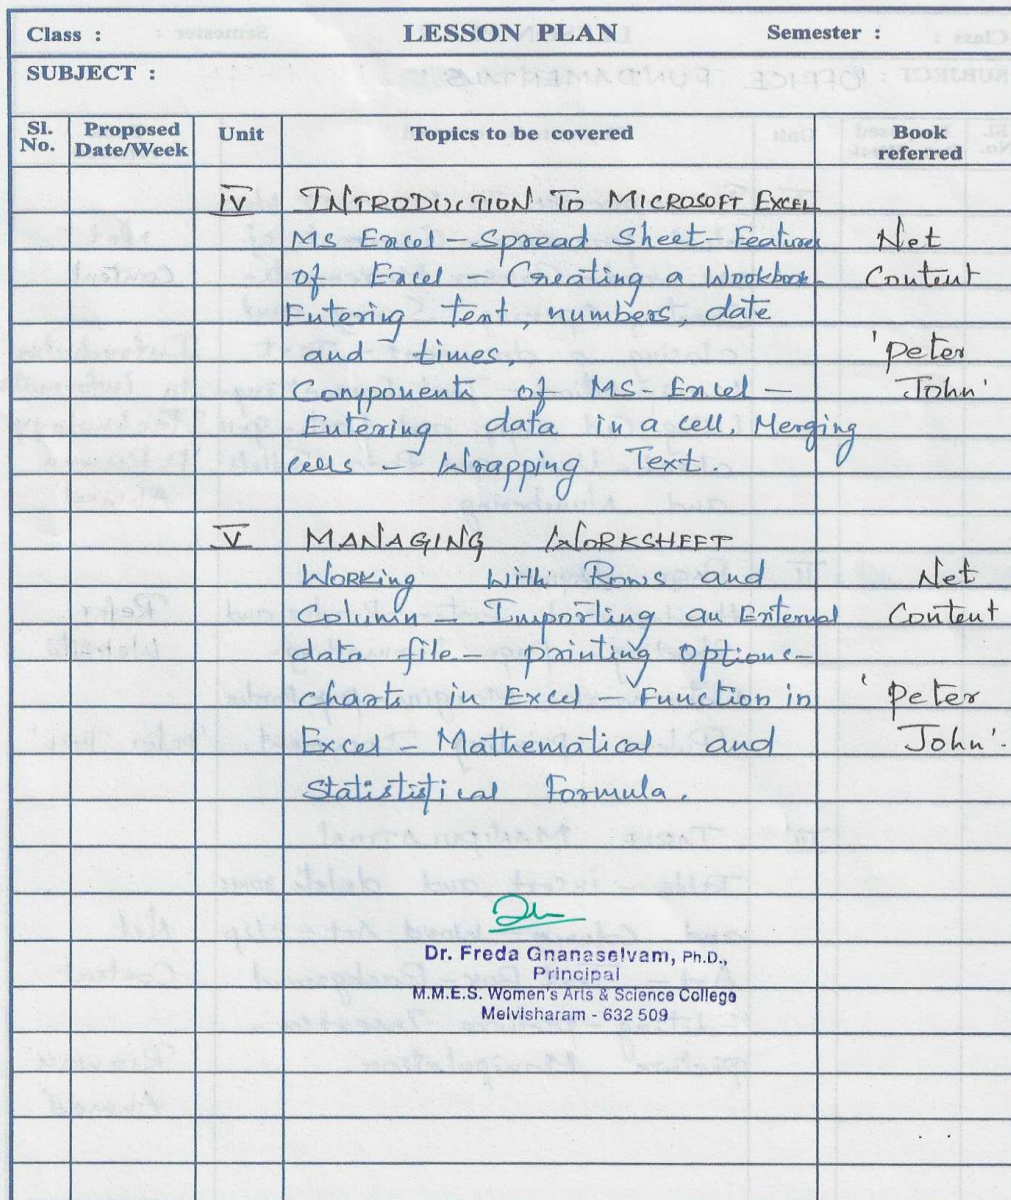 Class : LESSON PLAN Semester :
SUBJECT :
Sl. No. Proposed Date/Week Unit Topics to be covered Book referred
IV INTRODUCTION TO MICROSOFT EXCEL
Ms Excel - Spread Sheet - Features Net
of Excel - Creating a Wookbook - Content
Entering text, numbers, date
and times. 'peter
Components of MS-Excel - John'
Entering data in a cell, Merging
cells - Wrapping Text.
V MANAGING WORKSHEET
Working with Rows and Net
Column - Importing an External Content
data file - printing options -
charts in Excel - Function in 'peter
Excel - Mathematical and John'.
Statististical Formula.
Dr. Freda Gnanaselvam, Ph.D.,
Principal
M.M.E.S. Women's Arts & Science College
Melvisharam - 632 509